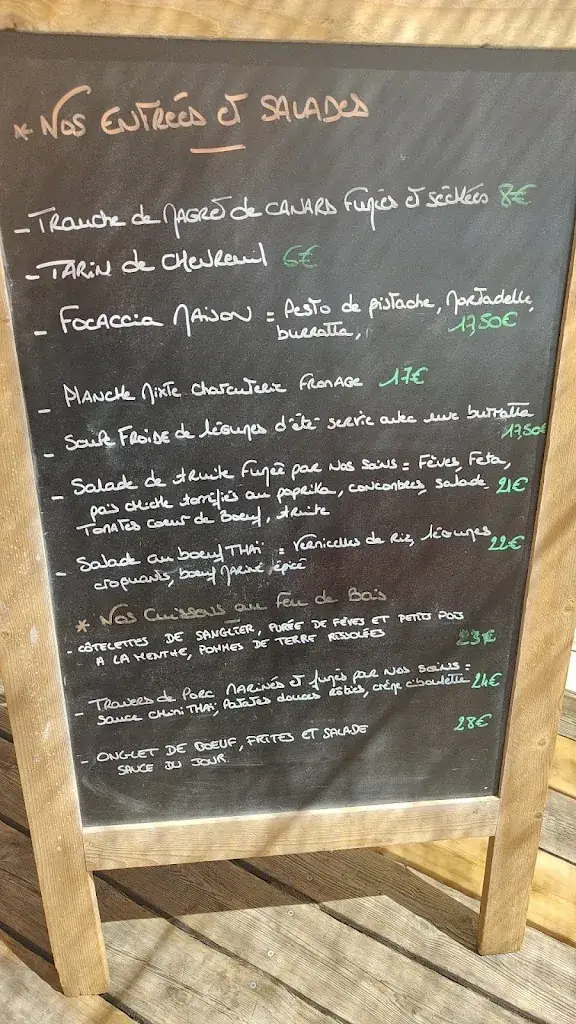 * NOS ENTRÉES ET SALADES
- TRANCHE de MAGRET de CANARD Fumées et séchées 8€
- TARIN de CHEVREUIL 6€
- FOCACCIA MAISON = Pesto de pistache, Mortadelle,
burratta, 17,50€
- PLANCHE Mixte charcuterie FROMAGE 17€
- SOUPE FROIDE de légumes d'été servie avec une burratta
17,50€
- Salade de truite Fumée par nos soins = Fèves, Feta,
pois chiche torréfiés au paprika, concombres, salade 21€
Tomates coeur de Boeuf, truite
- Salade au boeuf THAÏ = Vermicelles de Riz, légumes
croquants, boeuf Mariné, épicé 22€
* Nos Cuissons au Feu de Bois
- CÔTELETTES DE SANGLIER, PURÉE DE FÈVES ET PETITS POIS
A LA MENTHE, POMMES DE TERRE RISSOLÉES 23€
- TRAVERS de PORC MARINÉS et fumés par nos soins =
Sauce chimi THAÏ, Patates douces rôties, crème ciboulette 24€
- ONGLET DE BOEUF, FRITES ET SALADE 28€
SAUCE DU JOUR.